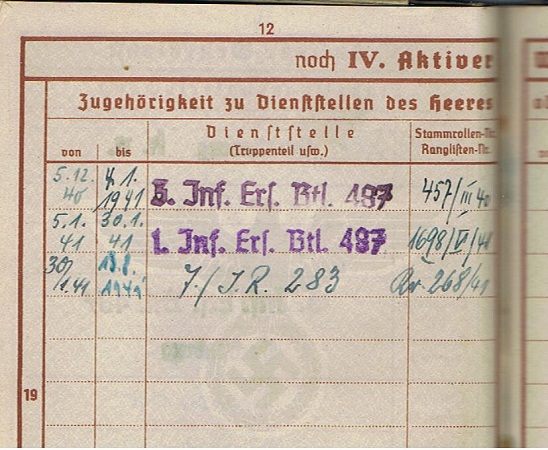 12
noch IV. Aktiver
Zugehörigkeit zu Dienststellen des Heeres
von bis
Dienststelle
(Truppenteil usw.)
Stammrollen-Nr.
Ranglisten-Nr.
5.12. 40 4.1. 1941 3. Inf. Ers. Btl. 487 457/III 40
5.1. 41 30.1. 41 1. Inf. Ers. Btl. 487 1698/V/41
30/1.41 1941 7./J.R. 283 268/41
19